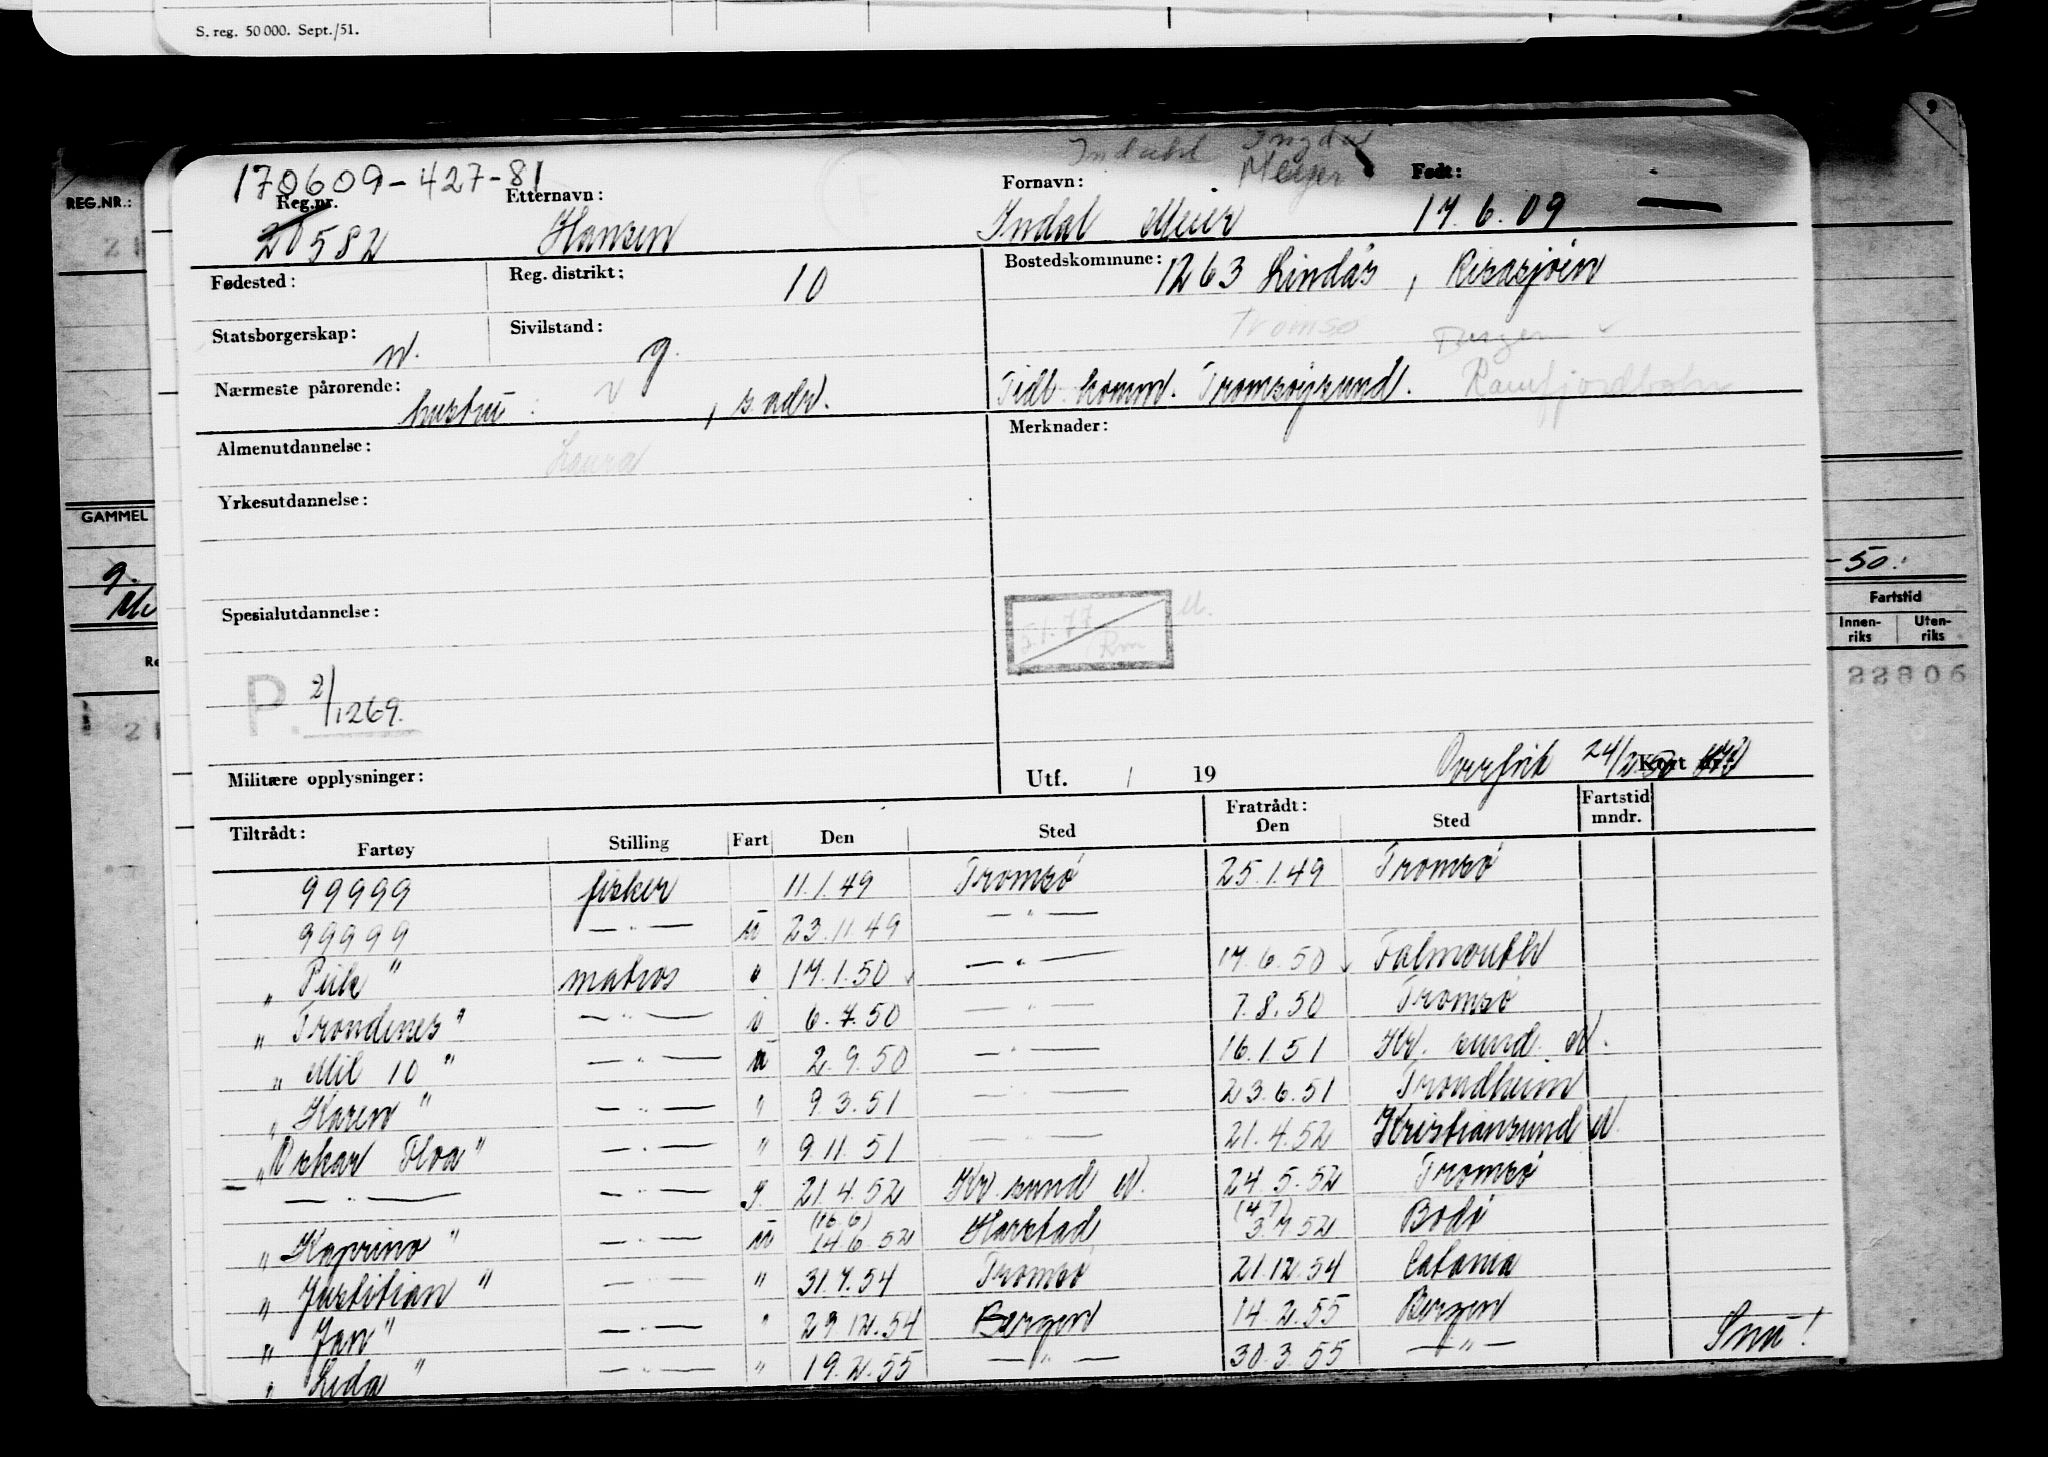 S. reg. 50 000. Sept./51.
REG.NR.:
GAMMEL
g.
-50.
Fartstid
Innen-riks Uten-riks
22806
170609-427-81
Reg.nr. Etternavn: Fornavn: Født:
20582 Hansen Indal Meier 17.6.09
Meyer
Fødested: Reg. distrikt: 10 Bostedskommune: 1263 Lindås,
Statsborgerskap: n. Sivilstand: g. Tromsø
Nærmeste pårørende: hustru: , s. adr. Tidl. komm. Tromsøysund. Ramfjordbotn
Almenutdannelse: Laura Merknader:
Yrkesutdannelse:
Spesialutdannelse:
51.77 M.
Rm
P. 2/1269.
Militære opplysninger: Utf. / 19 Kort nr.
Overført 24/2
Tiltrådt: Fratrådt: Fartstid mndr.
Fartøy Stilling Fart Den Sted Den Sted
99999 fisker 11.1.49 Tromsø 25.1.49 Tromsø
99999 — " — u 23.11.49 — " —
" Pick " matros " 17.1.50 — " — 17.6.50 Falmouth
" Trondenes " — " — i 6.7.50 — " — 7.8.50 Tromsø
" Mil 10 " — " — u 2.9.50 — " — 16.1.51 Kr. sund N.
" Karen " — " — " 9.3.51 — " — 23.6.51 Trondheim
" Oskar Floa " — " — " 9.11.51 — " — 21.4.52 Kristiansund N
— " — — " — 21.4.52 Kr. sund N. 24.5.52 Tromsø
(16.6) (4.7)
" Kaprino " — " — u 14.6.52 Harstad 3.7.52 Bodø
" Justitian " — " — " 31.7.54 Tromsø 21.12.54 Catania
" Jan " — " — " 29.12.54 Bergen 14.2.55 Bergen
" Leda " — " — " 19.2.55 — " — 30.3.55 — " —
Snu!